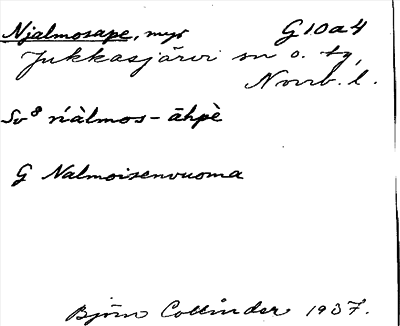 Njalmosape, myr G 10 a 4
Jukkasjärvi sn o. tg,
Norrb. l.
Sv 8 ńiàlmos-āhpè
G Nalmoisenvuoma
Björn Collinder 1937.